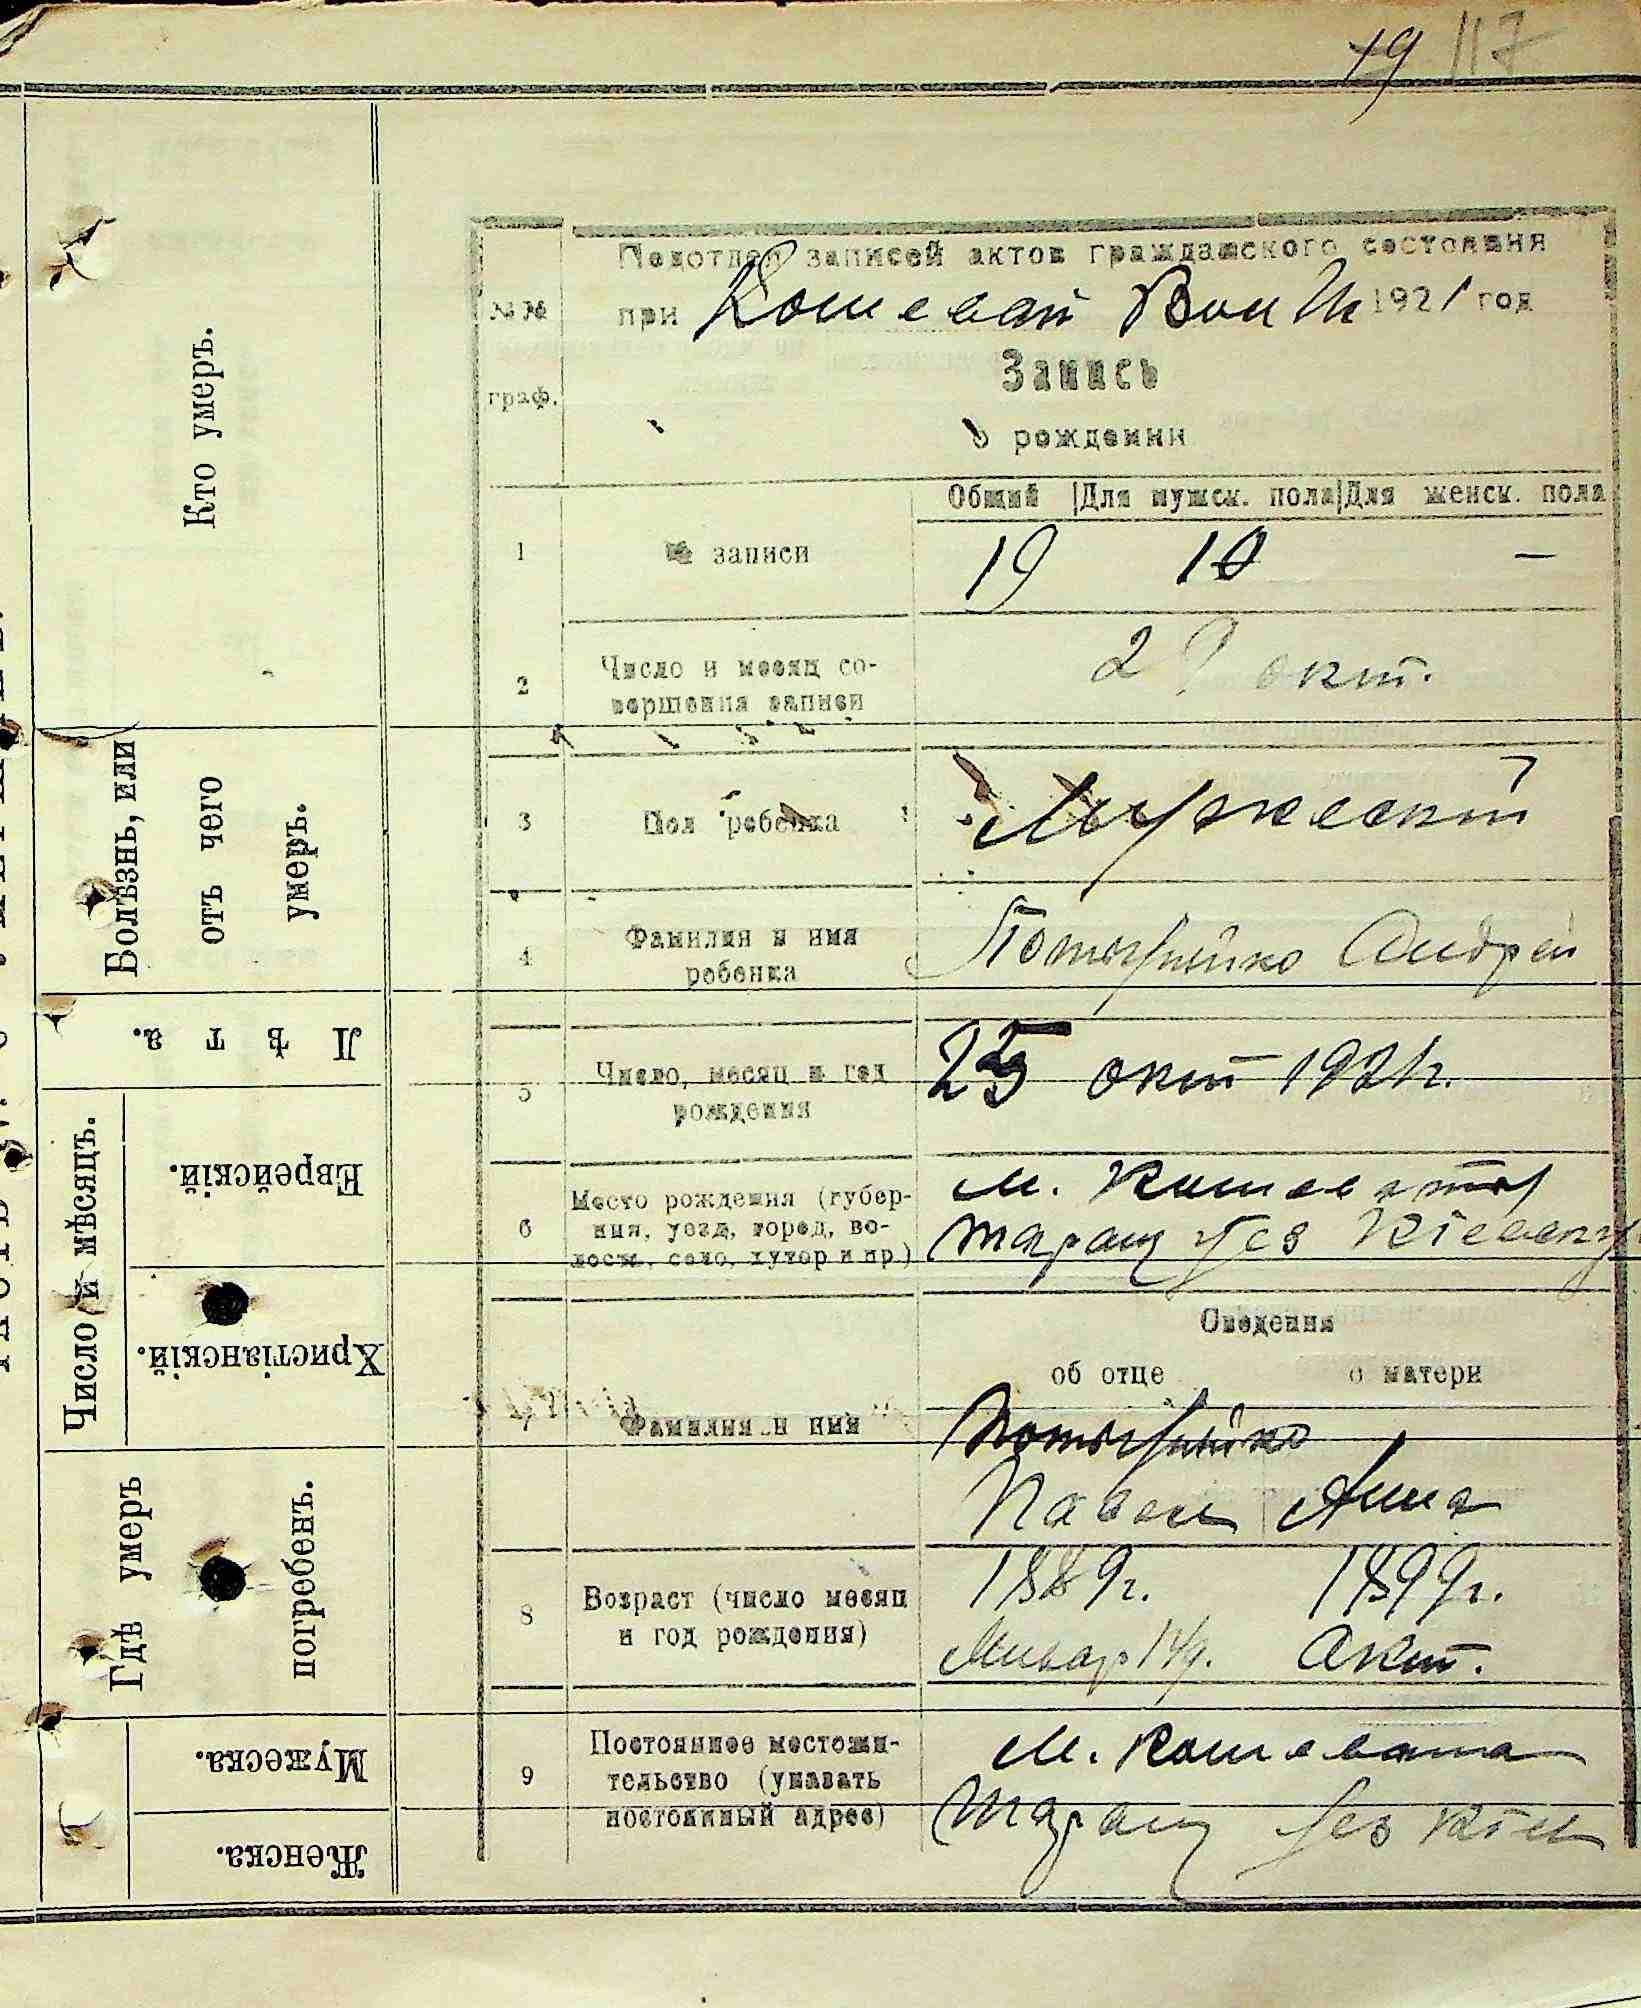 19 117
Кто умеръ.
Болѣзнь, или
отъ чего
умеръ.
Лѣта.
Число и мѣсяцъ.
Еврейскій.
Христіанскій.
Гдѣ умеръ
погребенъ.
Мужеска.
Женска.
Подотдел записей актов гражданского состояния
при 1921 год
№№
граф.
Запись
о рождении
Общий | Для мужск. пола | Для женск. пола
1 № записи 19 10 —
2 Число и месяц со-
вершения записи
29 окт.
3 Пол ребенка Мужеский
4 Фамилия и имя
ребенка
Андрей
5 Число, месяц и год
рождения
25 окт 1921 г.
6 Место рождения (губер-
ния, уезд, город, во-
лость, село, хутор и пр.)
м. Кошевату
Таращ уез Кіевску
Сведения
об отце о матери
Фамилия и имя
Павел Анна
8 Возраст (число месяц
и год рождения)
1889 г. 1899 г.
Январ 14 Окт.
9 Постоянное местожи-
тельство (указать
постоянный адрес)
М. Кошевата
Таращ уез Кіев